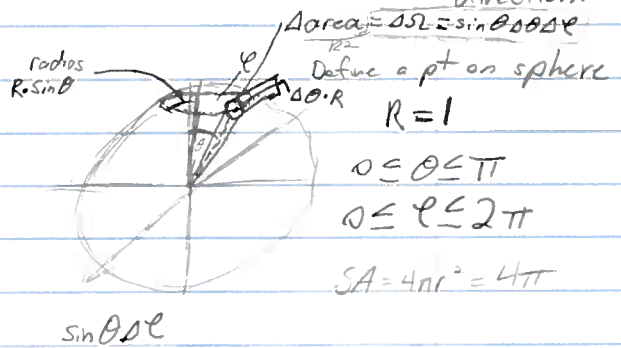 Δarea/R² = ΔΩ = sinθΔθΔφ
radius
R·sinθ
φ
Define a pt on sphere
Δθ·R
θ
R=1
0≤θ≤π
0≤φ≤2π
SA=4πr²=4π
sinθΔφ